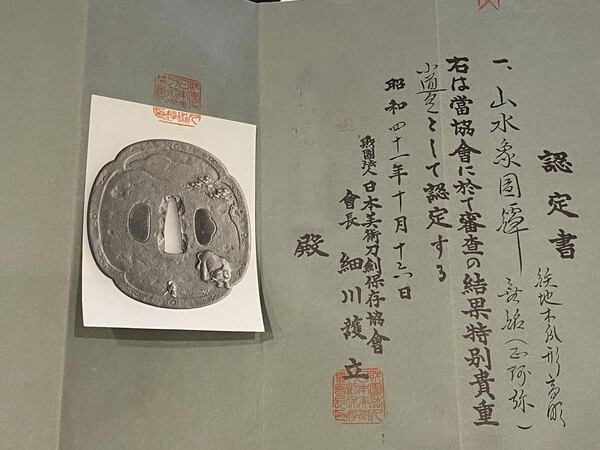 認定書
鉄地木瓜形高彫
一、山水象図鐔 無銘(正阿弥)
右は當協會に於て審査の結果特別貴重
小道具として認定する
昭和四十一年十月十六日
財團法人日本美術刀劍保存協會
會長 細川護立
殿